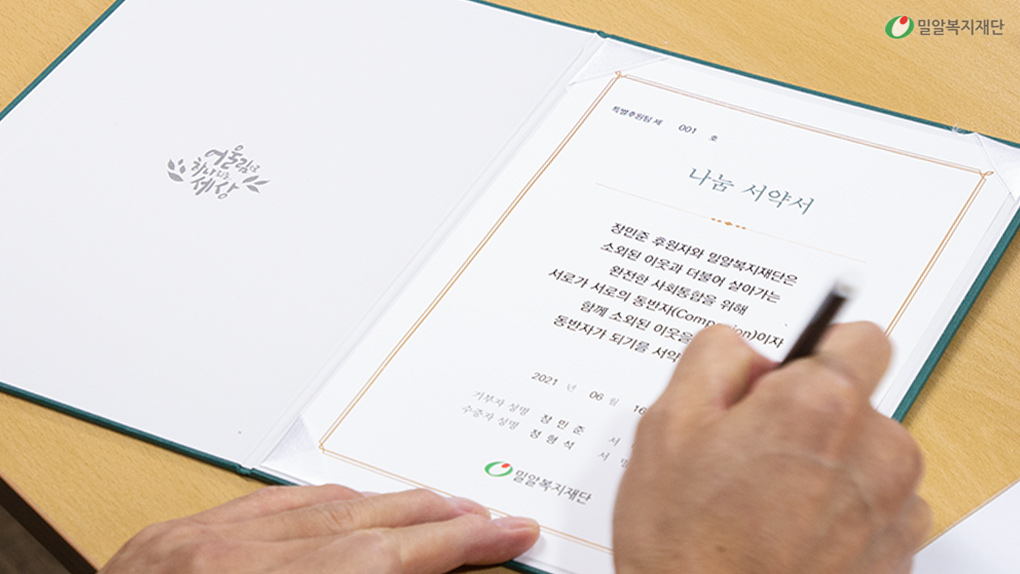 밀알복지재단
어울림으로
하나되는
세상
특별후원팀 제 001 호
나눔 서약서
장민준 후원자와 밀알복지재단은
소외된 이웃과 더불어 살아가는
완전한 사회통합을 위해
서로가 서로의 동반자(Companion)이자
함께 소외된 이웃을
동반자가 되기를 서약
2021 년 06 월 16
기부자 성명 장 민 준 서
수증자 성명 정 형 석 서 명
밀알복지재단